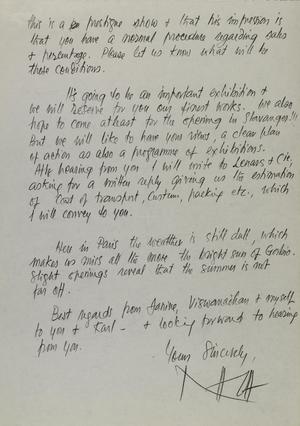 this is a prestige show & that his impression is
that you have a normal procedure regarding sales
& percentage. Please let us know what will be
these conditions.
It's going to be an important exhibition &
we will reserve for you our finest works. We also
hope to come atleast for the opening in Stavanger!!!
But we will like to have your views, a clear plan
of action as also a programme of exhibitions.
After hearing from you I will write to Lenars & Cie,
asking for a written reply giving us the estimation
of cost of transport, custom, packing etc., which
I will convey to you.
Here in Paris the weather is still dull, which
makes us miss all the more the bright sun of Gorbio.
Slight openings reveal that the summer is not
far off.
Best regards from Janine, Viswanadhan & myself
to you & Karl - & looking forward to hearing
from you.
Yours Sincerely,